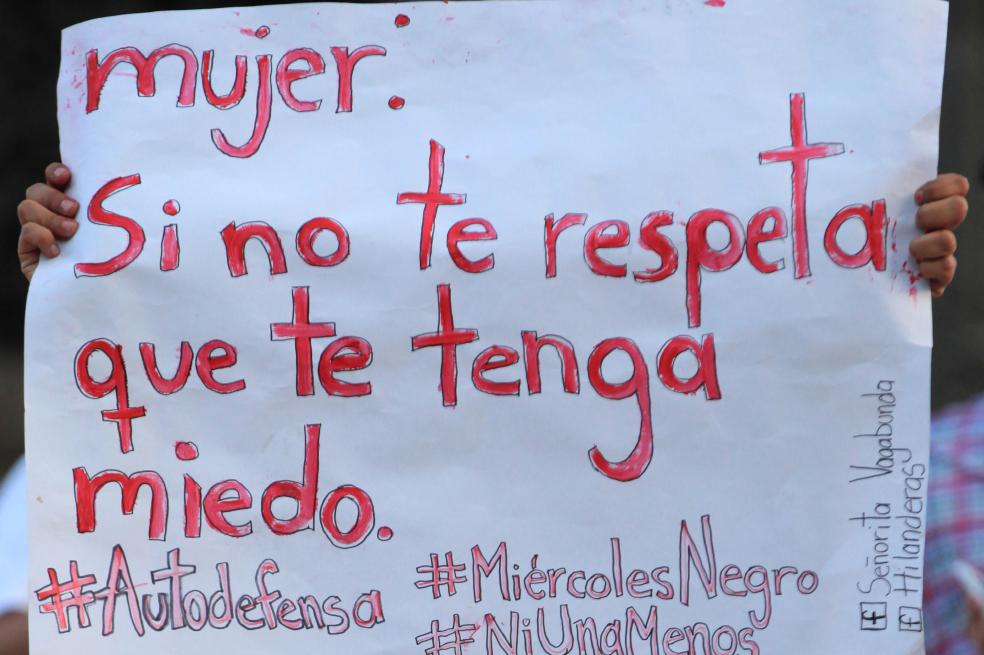 mujer:
Si no te respeta
que te tenga
miedo.
#Autodefensa
#MiércolesNegro
#NiUnaMenos
f Señorita Vagabunda
f Hilanderas